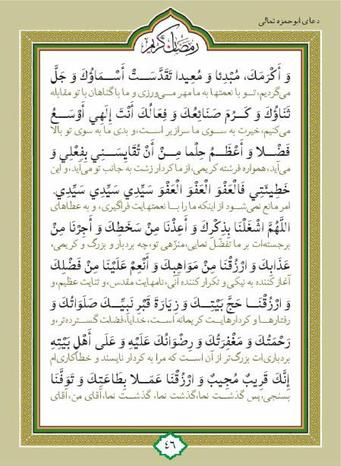 دعای ابوحمزه ثمالی
رمضان کریم
وَ أَكْرَمَكَ، مُبْدِئا وَ مُعِيدا تَقَدَّسَتْ أَسْمَاؤُكَ وَ جَلَّ
می‌گردیم، تو با نعمتها به ما مهر می‌ورزی و ما با گناهان با تو مقابله
ثَنَاؤُكَ وَ كَرُمَ صَنَائِعُكَ وَ فِعَالُكَ أَنْتَ إِلَهِي أَوْسَعُ
می‌کنیم، خیرت به سوی ما سرازیر است، و بدی ما به سوی تو بالا
فَضْلا وَ أَعْظَمُ حِلْما مِنْ أَنْ تُقَايِسَنِي بِفِعْلِي وَ
می‌آید، همواره فرشته کریمی، از ما کردار زشت به جانب تو می‌آید، و این
خَطِيئَتِي فَالْعَفْوَ الْعَفْوَ الْعَفْوَ سَيِّدِي سَيِّدِي سَيِّدِي.
امر مانع نمی‌شود از اینکه ما را با نعمتهایت فراگیری، و به عطاهای
اللَّهُمَّ اشْغَلْنَا بِذِكْرِكَ وَ أَعِذْنَا مِنْ سَخَطِكَ وَ أَجِرْنَا مِنْ
برجسته‌ات بر ما تفضّل نمایی، منزّهی تو، چه بردبار و بزرگ و کریمی،
عَذَابِكَ وَ ارْزُقْنَا مِنْ مَوَاهِبِكَ وَ أَنْعِمْ عَلَيْنَا مِنْ فَضْلِكَ
آغاز کننده به نیکی و تکرار کننده آنی، نامهایت مقدس، و ثنایت عظیم، و
وَ ارْزُقْنَا حَجَّ بَيْتِكَ وَ زِيَارَةَ قَبْرِ نَبِيِّكَ صَلَوَاتُكَ وَ
رفتارها و کردارهایت کریمانه است، خدایا، فضلت گسترده‌تر، و
رَحْمَتُكَ وَ مَغْفِرَتُكَ وَ رِضْوَانُكَ عَلَيْهِ وَ عَلَى أَهْلِ بَيْتِهِ
بردباری‌ات بزرگ‌تر از آن است که مرا به کردار ناپسند و خطاکاری‌ام
إِنَّكَ قَرِيبٌ مُجِيبٌ وَ ارْزُقْنَا عَمَلا بِطَاعَتِكَ وَ تَوَفَّنَا
بسنجی، پس گذشت نما، گذشت نما، گذشت نما، آقای من، آقای
۴۶